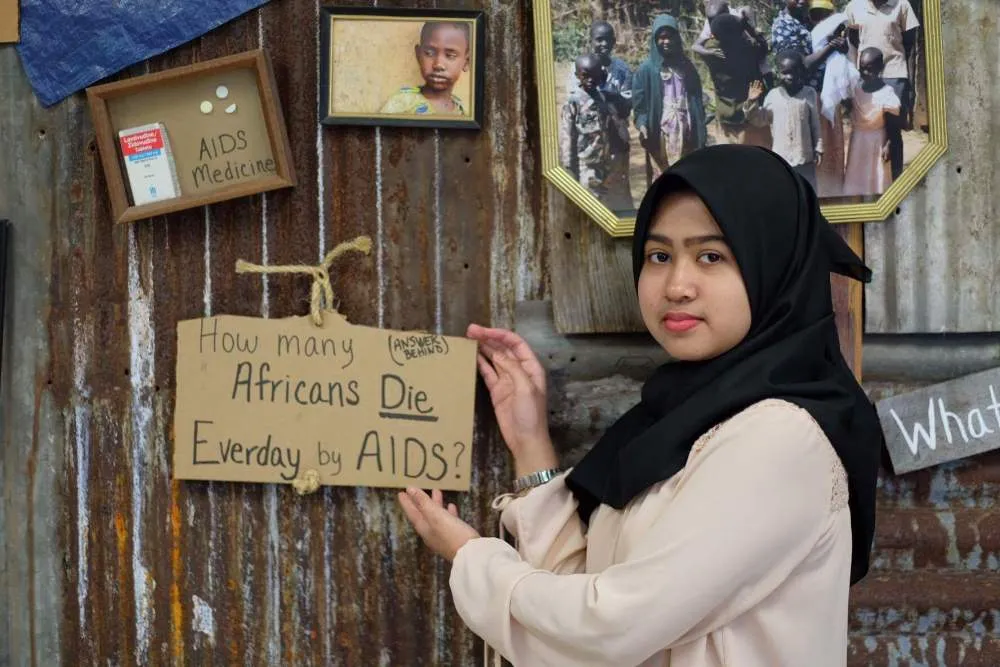 Lamivudine/
Zidovudine
Tablets
AIDS
Medicine
How many
(ANSWER
BEHIND)
Africans Die
Everday by AIDS?
What